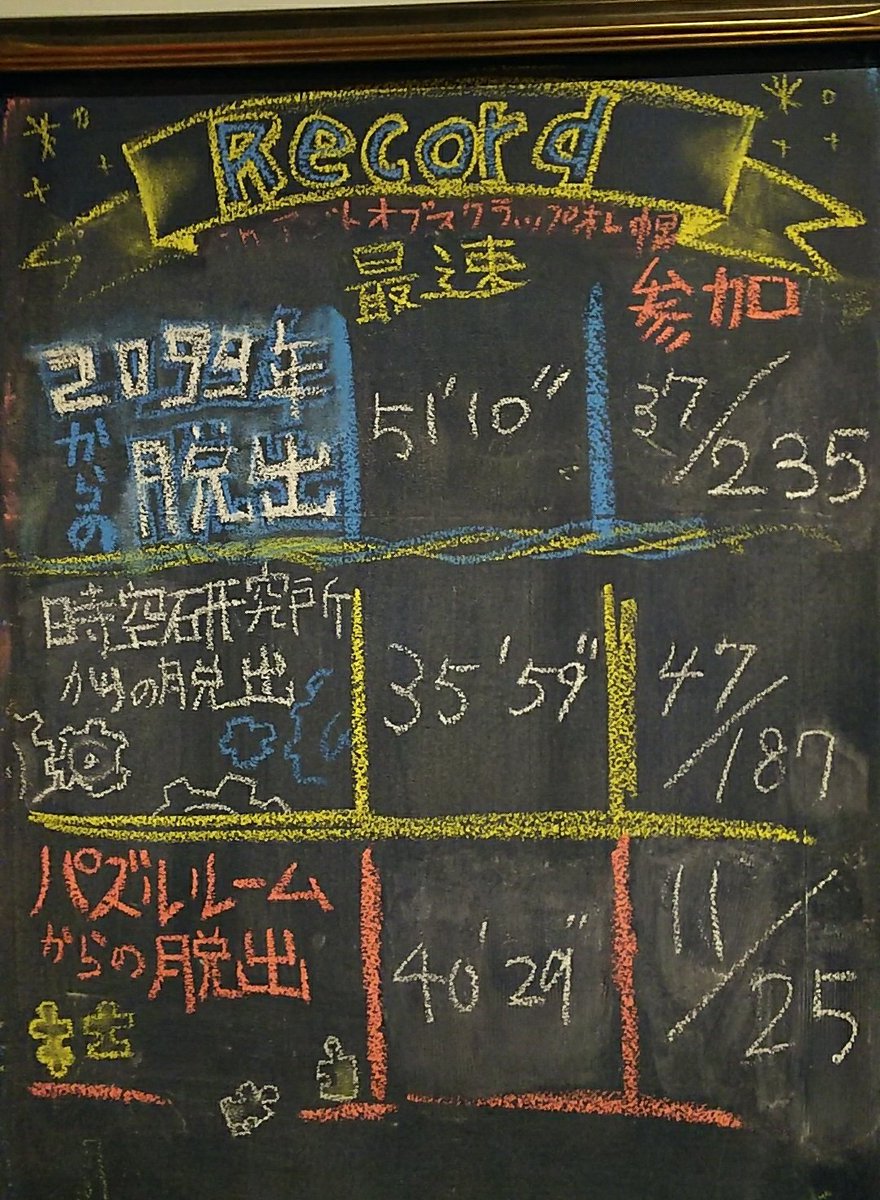 Record
in アジトオブスクラップ札幌
最速
参加
2099年
からの脱出
51'10"
37/235
時空研究所
からの脱出
35'59"
47/187
パズルルーム
からの脱出
40'29"
11/25